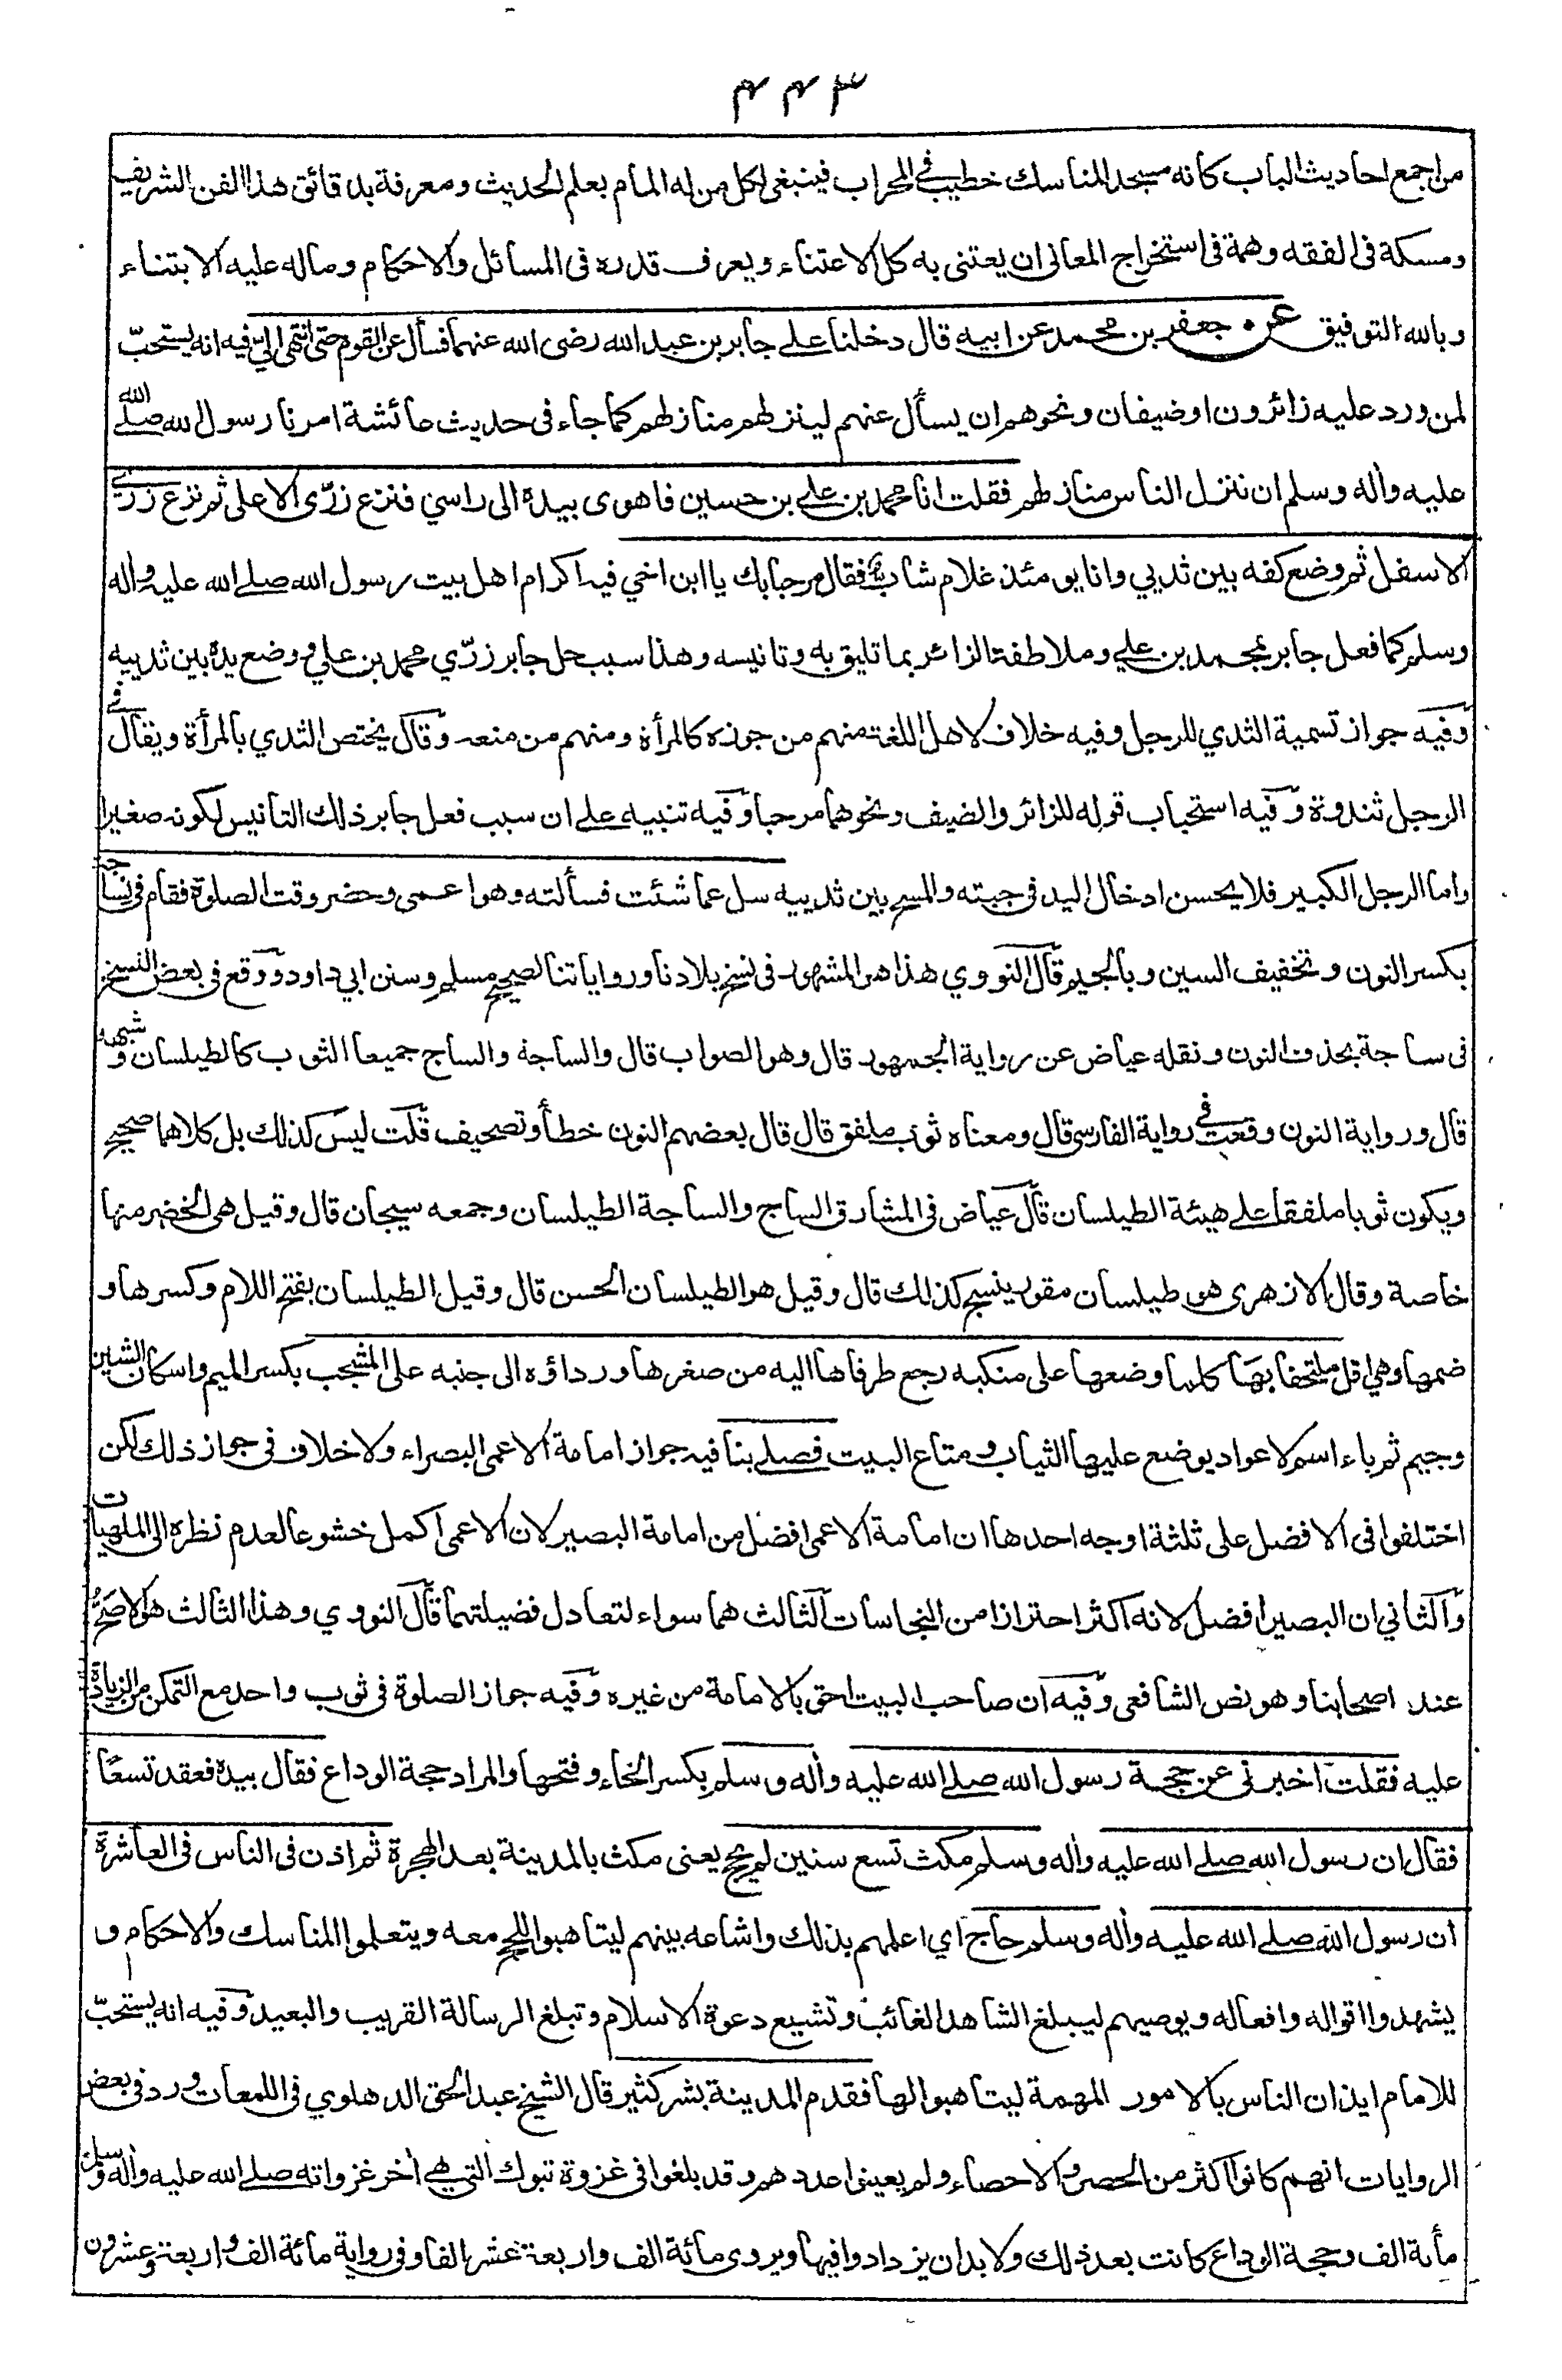 ٤٤٣
من اجمع احاديث الباب كانه مسجد المناسك خطيب في المحراب فينبغي لكل من له المام بعلم الحديث ومعرفة بدقائق هذا الفن الشريف
ومسكة في الفقه وهمة في استخراج المعاني ان يعتني به كل الاعتناء ويعرف قدره في المسائل والاحكام وماله عليه الابتناء
وبالله التوفيق عن جعفر بن محمد عن ابيه قال دخلنا علي جابر بن عبد الله رضى الله عنهما فسأل عن القوم حتى انتهى الي فيه انه يستحبّ
لمن ورد عليه زائرون او ضيفان ونحوهم ان يسأل عنهم لينزلهم منازلهم كما جاء في حديث عائشة امرنا رسول الله صلے الله
عليه وأله وسلم ان ننزل الناس منازلهم فقلت انا محمد بن علي بن حسين فاهوى بيده الى راسي فنزع زرّى الاعلى ثم نزع زرّي
الاسفل ثم وضع كفه بين ثديي وانا يومئذ غلام شاب فقال مرحبا بك يا ابن اخي فيه اكرام اهل بيت رسول الله صلے الله عليه وأله
وسلم كما فعل جابر بمحمد بن علي وملاطفة الزائر بما تليق به وتانيسه وهذا سبب حل جابر زرّي محمد بن علي ووضع يده بين ثدييه
وفيه جواز تسمية الثدي للرجل وفيه خلاف لاهل اللغة منهم من جوزه كالمرأة ومنهم من منعه وقال يختص الثدي بالمرأة ويقال في
الرجل ثندوة وفيه استحباب قوله للزائر والضيف ونحوهما مرحبا وفيه تنبيه على ان سبب فعل جابر ذلك التانيس لكونه صغيرا
واما الرجل الكبير فلا يحسن ادخال اليد في جبته والمسح بين ثدييه سل عما شئت فسألته وهو اعمى وحضر وقت الصلوة فقام في نساجة
بكسر النون وتخفيف السين وبالجيم قال النووي هذا هو المشهور في نسخ بلادنا ورواياتنا لصحيح مسلم وسنن ابي داود ووقع في بعض النسخ
في ساجة بحذف النون ونقله عياض عن رواية الجمهور قال وهو الصواب قال والساجة والساج جميعا الثوب كالطيلسان وشبهه
قال ورواية النون وقعت في رواية الفارسي قال ومعناه ثوب ملفق قال قال بعضهم النون خطأ وتصحيف قلت ليس كذلك بل كلاهما صحيح
ويكون ثوبا ملفقا علي هيئة الطيلسان قال عياض في المشارق الساج والساجة الطيلسان وجمعه سيجان قال وقيل هي الخضر منها
خاصة وقال الازهرى هو طيلسان مقور ينسج كذلك قال وقيل هو الطيلسان الحسن قال وقيل الطيلسان بفتح اللام وكسرها و
ضمها وهي اقل ملتحفا بها كلما وضعها على منكبه رجع طرفاها اليه من صغرها ورداؤه الى جنبه على المشجب بكسر الميم واسكان الشين
وجيم ثم باء اسم لاعواد يوضع عليها الثياب ومتاع البيت فصلے بنا فيه جواز امامة الاعمى البصراء ولا خلاف في جواز ذلك لكن
اختلفوا في الافضل على ثلثة اوجه احدها ان امامة الاعمى افضل من امامة البصير لان الاعمى اكمل خشوعا لعدم نظره الى الملهيات
والثاني ان البصير افضل لانه اكثر احترازا من النجاسات الثالث هما سواء لتعادل فضيلتهما قال النووي وهذا الثالث هو الاصحّ
عند اصحابنا وهو نص الشافعي وفيه ان صاحب البيت احق بالامامة من غيره وفيه جواز الصلوة في ثوب واحد مع التمكن من الزيادة
عليه فقلت اخبرني عن حجة رسول الله صلے الله عليه وأله وسلم بكسر الخاء وفتحها والمراد حجة الوداع فقال بيده فعقد تسعًا
فقال ان رسول الله صلے الله عليه وأله وسلم مكث تسع سنين لم يحج يعني مكث بالمدينة بعد الهجرة ثم اذن في الناس في العاشرة
ان رسول الله صلے الله عليه وأله وسلم حاج اي اعلمهم بذلك واشاعه بينهم ليتاهبوا للحج معه ويتعلموا المناسك والاحكام و
يشهدوا اقواله وافعاله ويوصيهم ليبلغ الشاهد الغائب وتشيع دعوة الاسلام وتبلغ الرسالة القريب والبعيد وفيه انه يستحبّ
للامام ايذان الناس بالامور المهمة ليتاهبوا لها فقدم المدينة بشر كثير قال الشيخ عبد الحق الدهلوي في اللمعات ورد في بعض
الروايات انهم كانوا اكثر من الحصر والاحصاء ولم يعينوا عددهم وقد بلغوا في غزوة تبوك التي هي أخر غزواته صلے الله عليه وأله وسلم
مأىة الف وحجة الوداع كانت بعد ذلك ولا بد ان يزدادوا فيها ويروى مائة الف واربعة عشر الفا وفي رواية مائة الف واربعة وعشرون